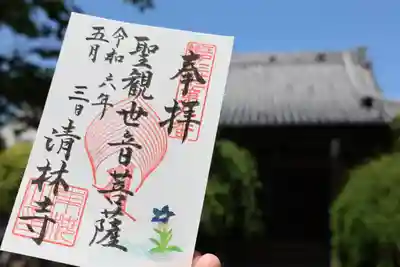 奉拝
聖観世音菩薩
令和六年
五月三日
清林寺